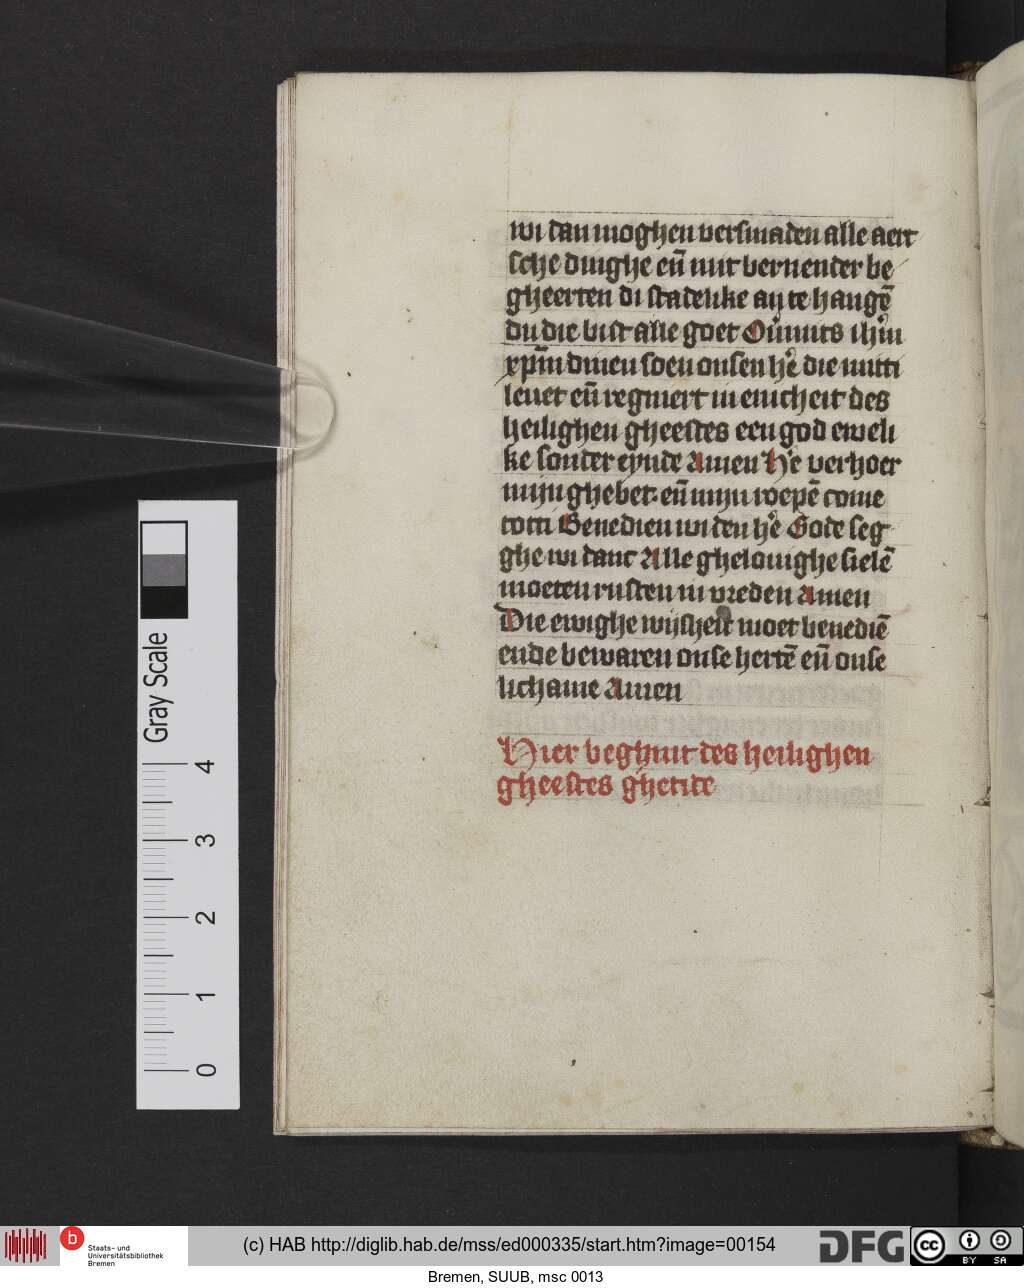 wi dan moghen versmaden alle aert
sche dinghe eñ mit bernender be
gheerten di stadelike an te hangē
du die bist alle goet Ouimits ihm̄
xp̄m dinen soen onsen hē die mitti
leuet eñ regniert in enicheit des
heilighen gheestes een god eweli
ke sonder eynde Amen Hē verhoer
mijn ghebet eñ mijn roepē come
totti Benedien wi den hē Gode seg
ghe wi danc Alle ghelouighe sielē
moeten rusten in vreden Amen
Die ewighe wijsheit moet benediē
ende bewaren onse hertē eñ onse
lichame Amen
Hier beghint des heilighen
gheestes ghetide
Gray Scale
4
3
2
1
0
b
Staats- und
Universitätsbibliothek
Bremen
(c) HAB http://diglib.hab.de/mss/ed000335/start.htm?image=00154
DFG
cc
BY SA
Bremen, SUUB, msc 0013